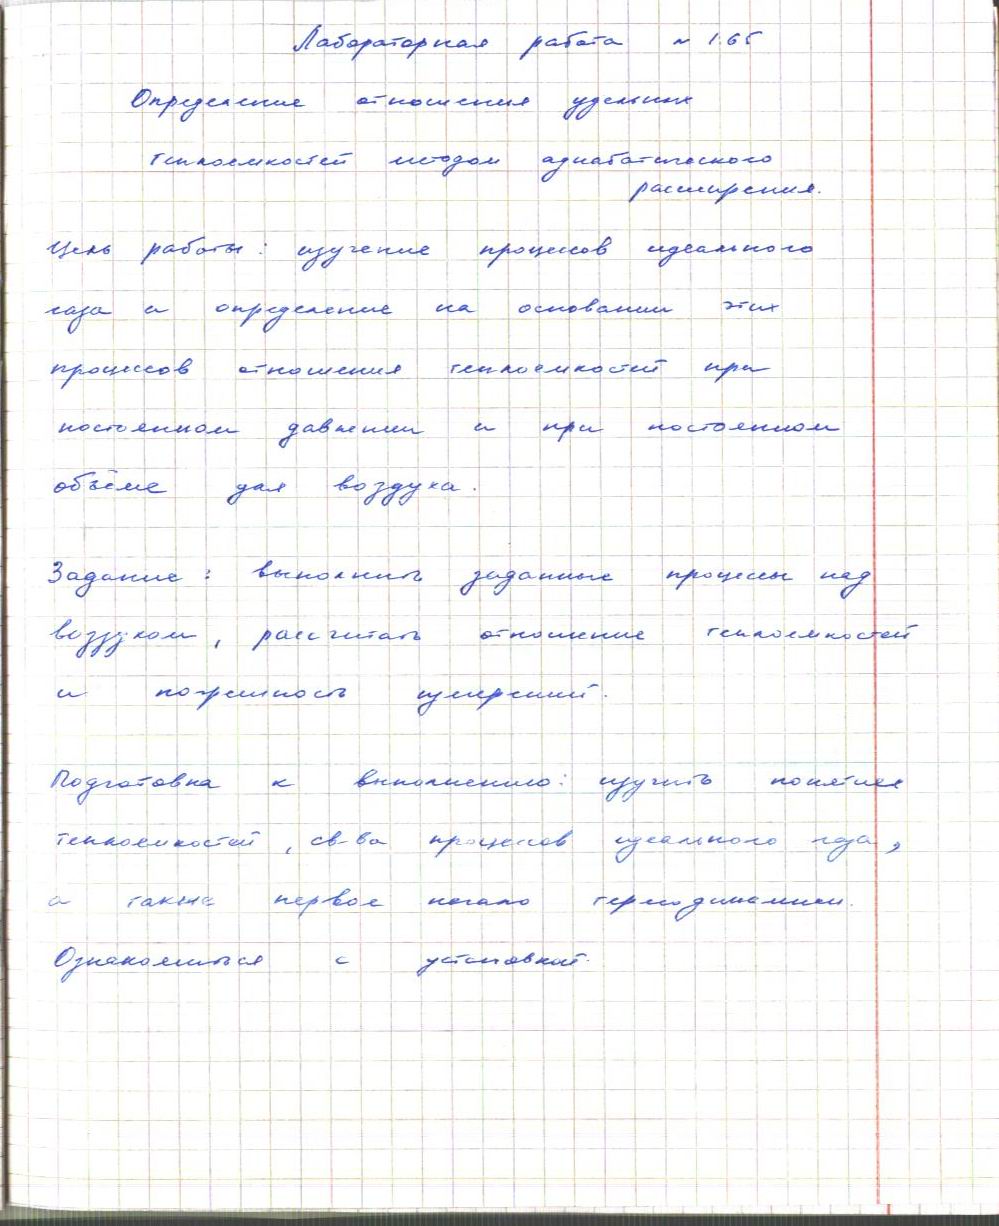 Лабораторная работа № 1.65
Определение отношения удельных
теплоемкостей методом адиабатического
расширения.
Цель работы: изучение процессов идеального
газа и определение на основании этих
процессов отношения теплоемкостей при
постоянном давлении и при постоянном
объёме для воздуха.
Задание: выполнить заданные процессы над
воздухом, рассчитать отношение теплоемкостей
и погрешность измерений.
Подготовка к выполнению: изучить понятия
теплоемкостей, св-ва процессов идеального газа,
а также первое начало термодинамики.
Ознакомиться с установкой.